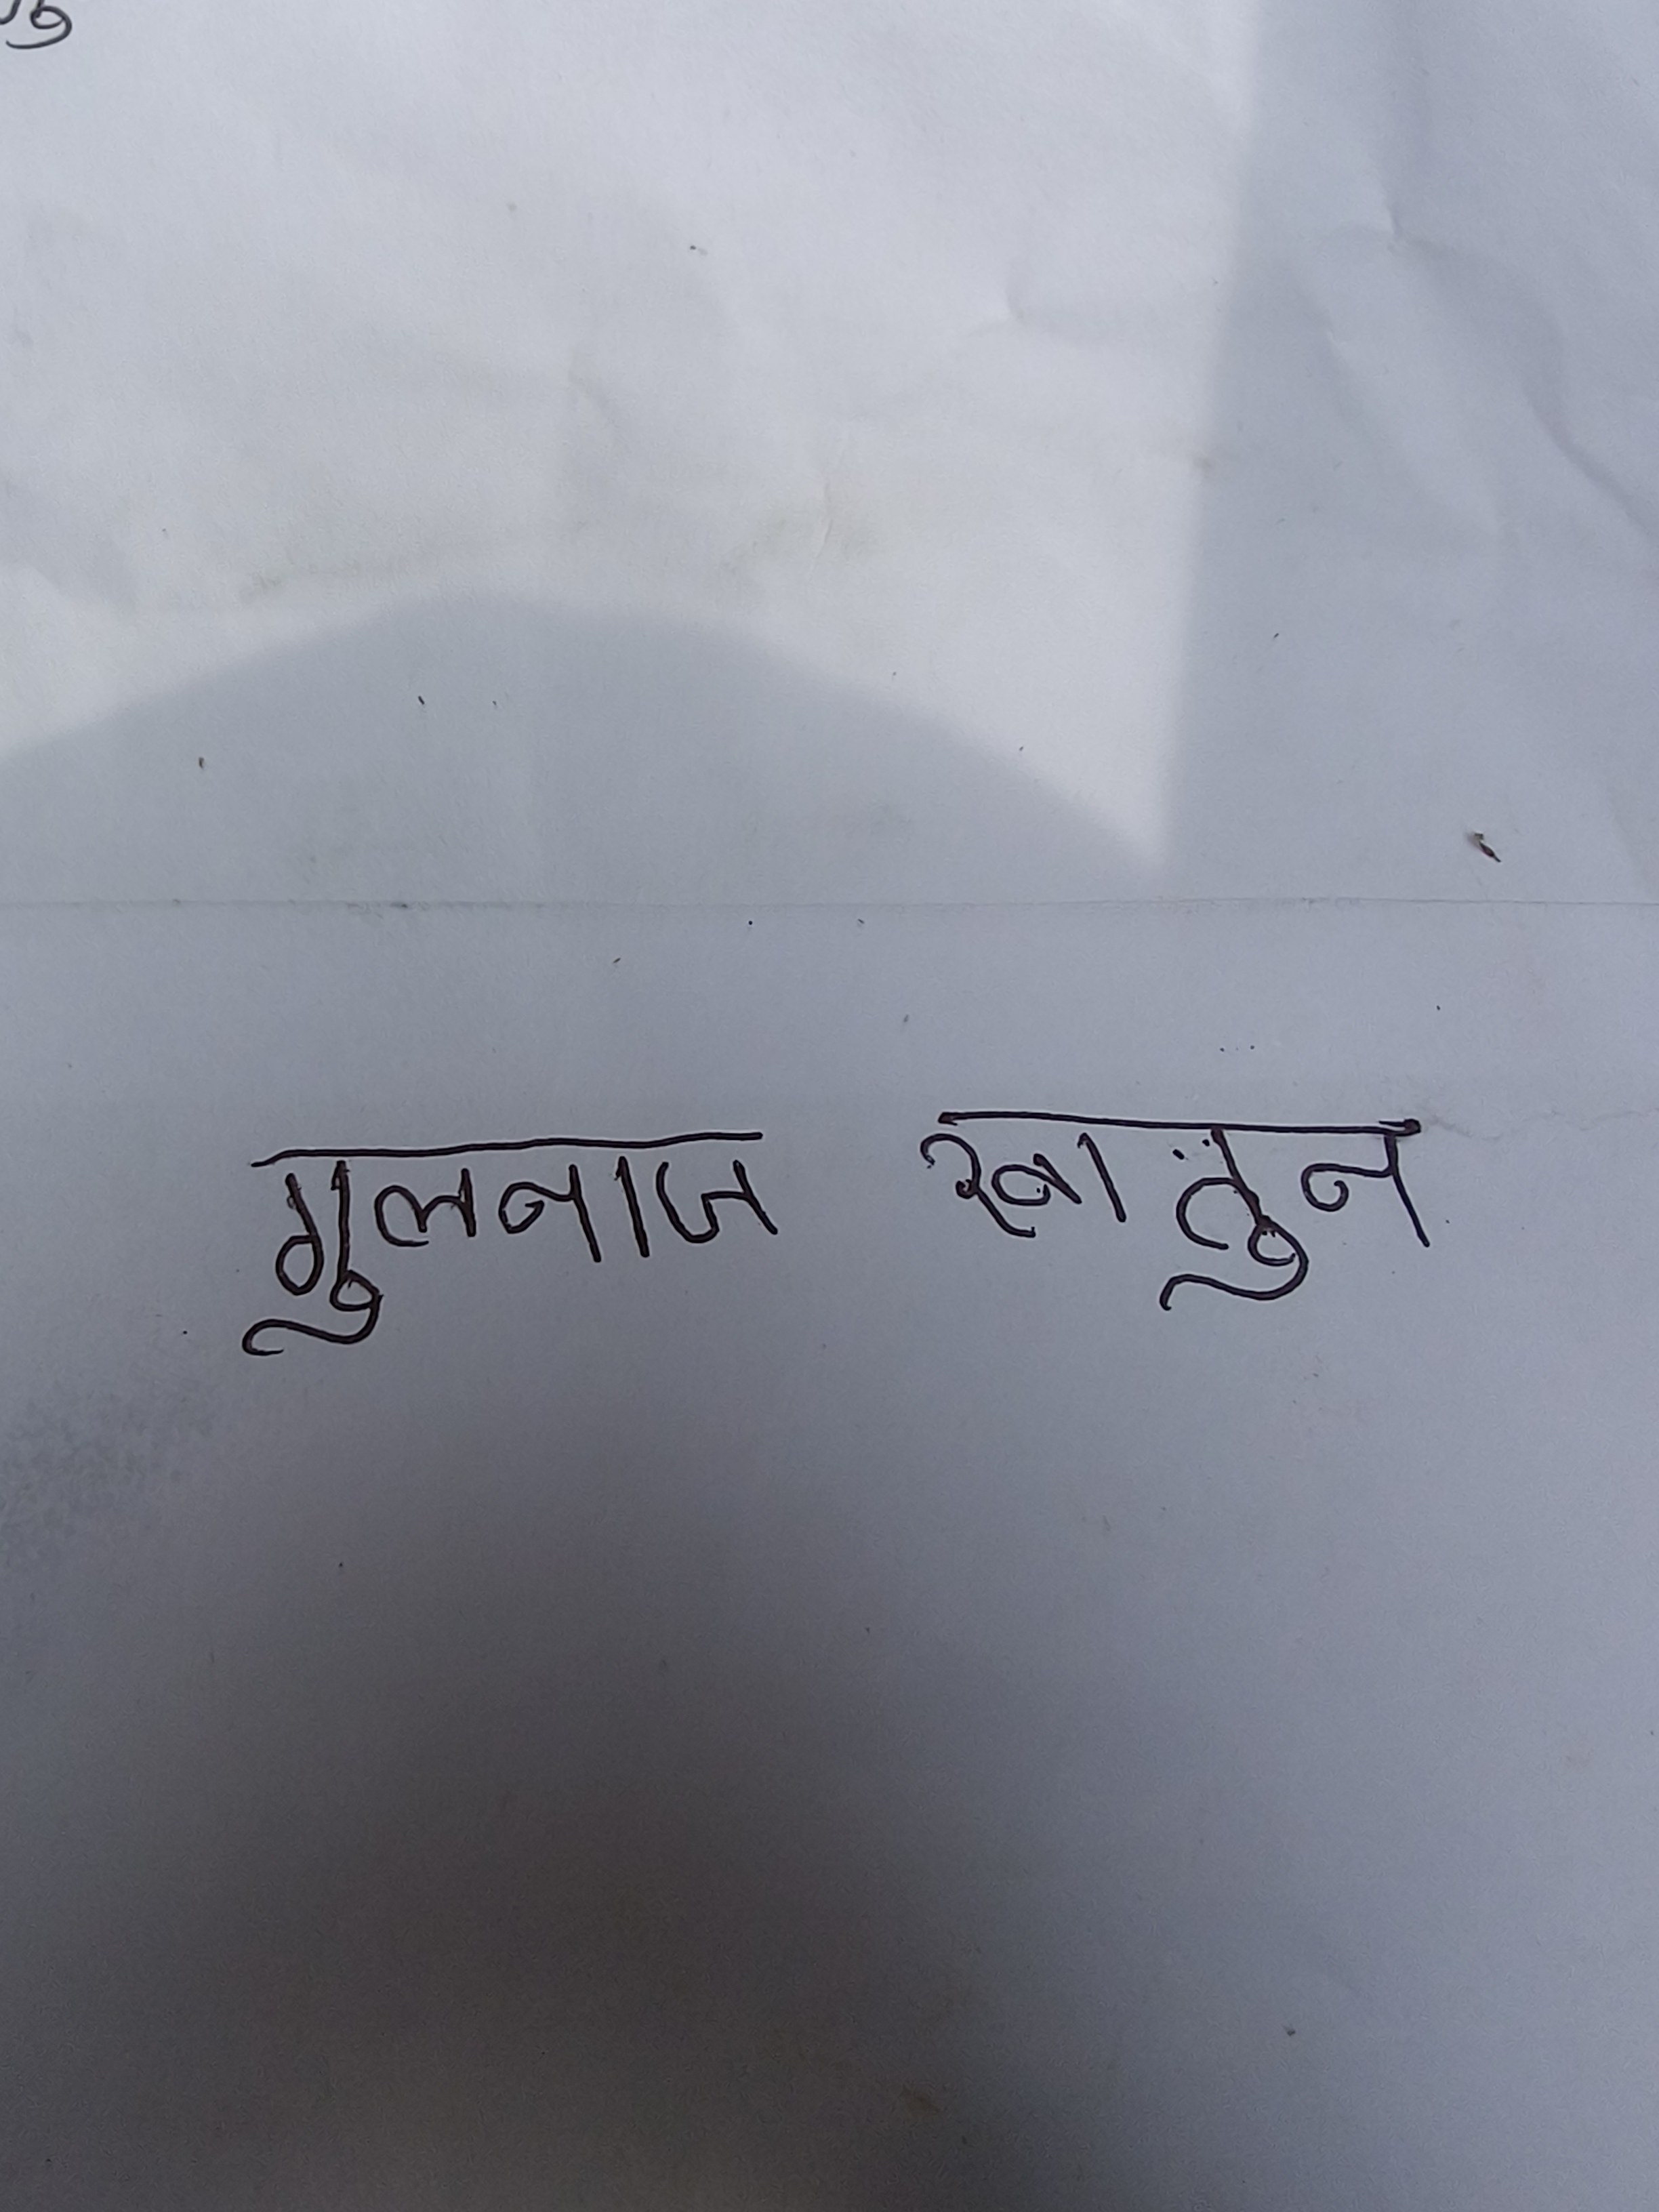 गुलनाज खातुन